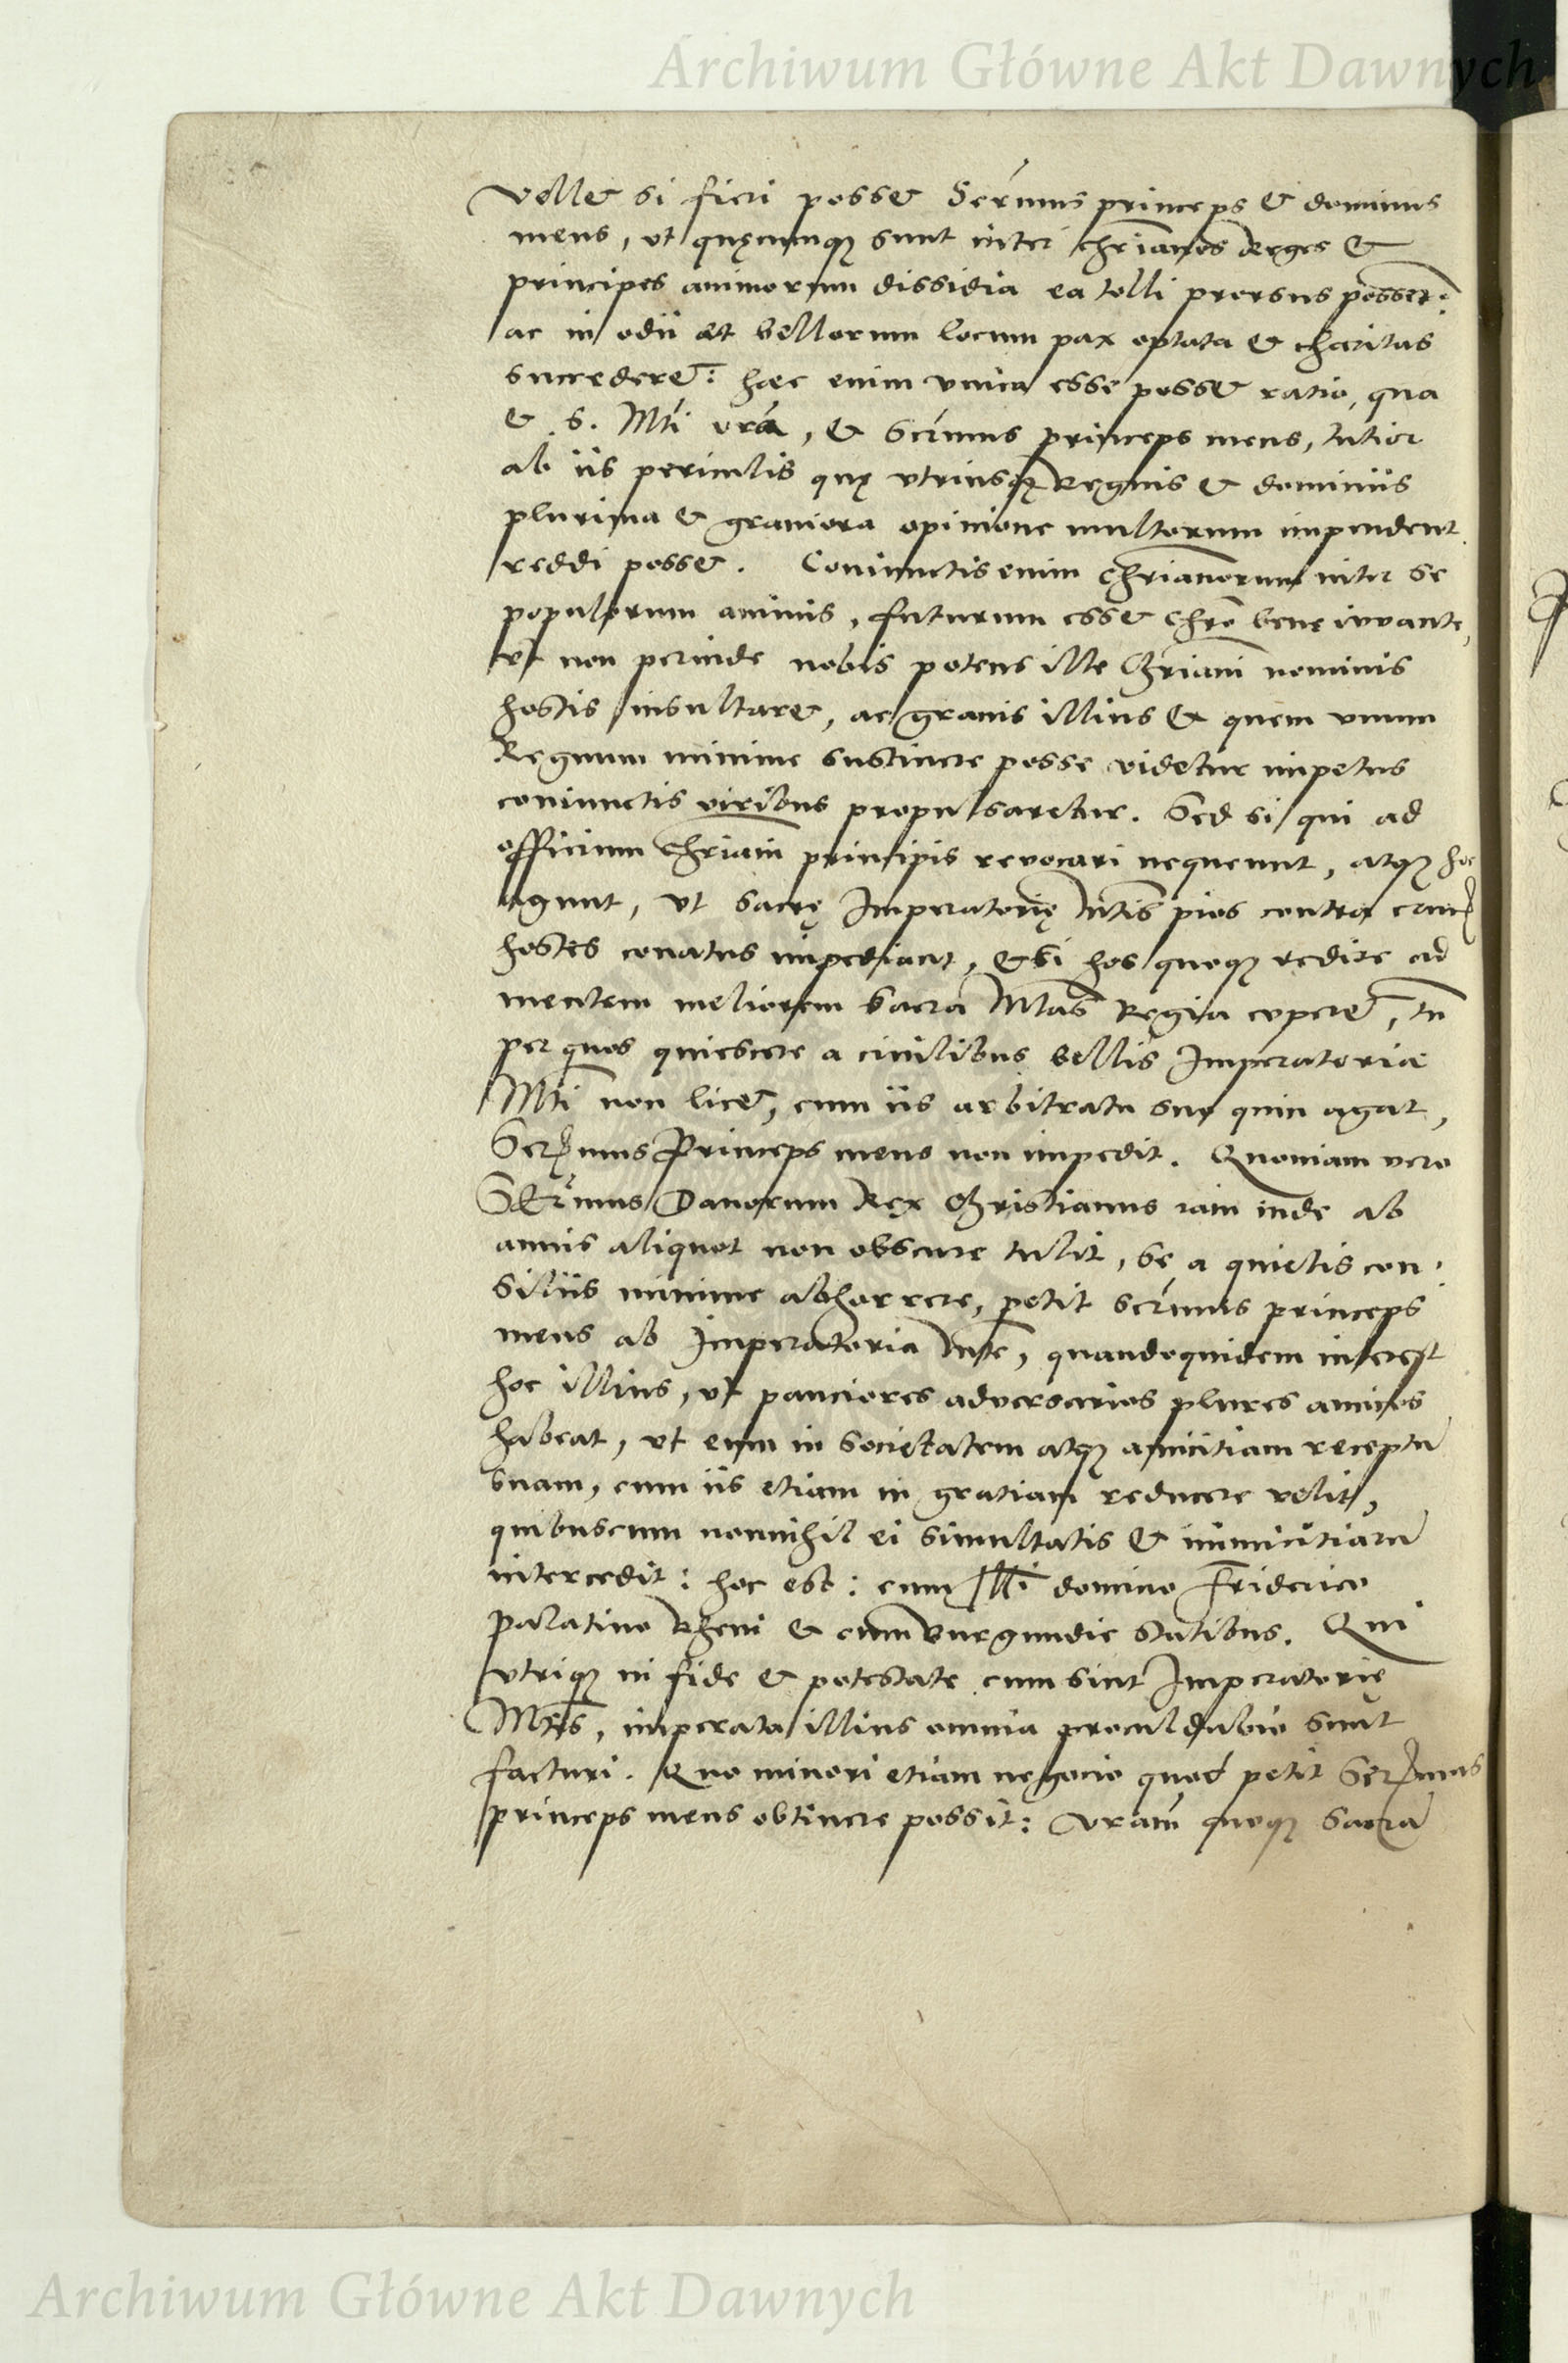 Archiwum Główne Akt Dawnych
Vellet si fieri posset Serm̃us princeps et dominus
meus, ut quęcunq; sunt inter chr̃ianos Reges et
principes animorum dissidia ea tolli prorsus possent:
ac in odii et bellorum locum pax optata et charitas
succederet: haec enim unica esse posset ratio, qua
et S. Mti vrã, et Serm̃us princeps meus, tutior
ab iis periculis quę utriusq; Regnis et dominiis
plurima et graviora opinione multorum impendent
reddi posset. Coniunctis enim chr̃ianorum inter se
populorum animis, futurum esset Chr̃o bene iuvante,
ut non perinde nobis potens ille Chr̃iani nominis
hostis insultaret, ac gravis illius et quem unum
Regnum minime sustinere posse videtur impetus
coniunctis viribus propulsaretur. Sed si qui ad
officium Chr̃iani principis revocari nequeunt, atq; hoc
agunt, ut sacrę Imperatorię Mtis pios contra crucis
hostes conatus impediant, etsi hos quoq; redire ad
mentem meliorem Sacra Mtas Regia cuperet, tñ
per quos quiescere a civilibus bellis Imperatoriae
Mti non licet, cum iis arbitratu suo quin agat,
Serm̃us Princeps meus non impedit. Quoniam vero
Serm̃us Danorum Rex Christianus iam inde ab
annis aliquot non obscure tulit, se a quietis con:
siliis minime abhorrere, petit Serm̃us princeps
meus ab Imperatoria Mte, quandoquidem interest
hoc illius, ut pauciores adversarios plures amicos
habeat, ut eum in societatem atq; amicitiam receptũ
suam, cum iis etiam in gratiam reducere velit,
quibuscum nonnihil ei simultatis et inimicitiarũ
intercedit: hoc est: cum Illi domino Friderico
palatino Rheni et cum Burgundie statibus. Qui
utriq; in fide et potestate cum sint Imperatorię
Mtis, imperata illius omnia proculdubio sunt
facturi. Quo minori etiam negocio quod petit Serm̃us
princeps meus obtinere possit: Vram̃ quoq; Sacrã
Archiwum Główne Akt Dawnych